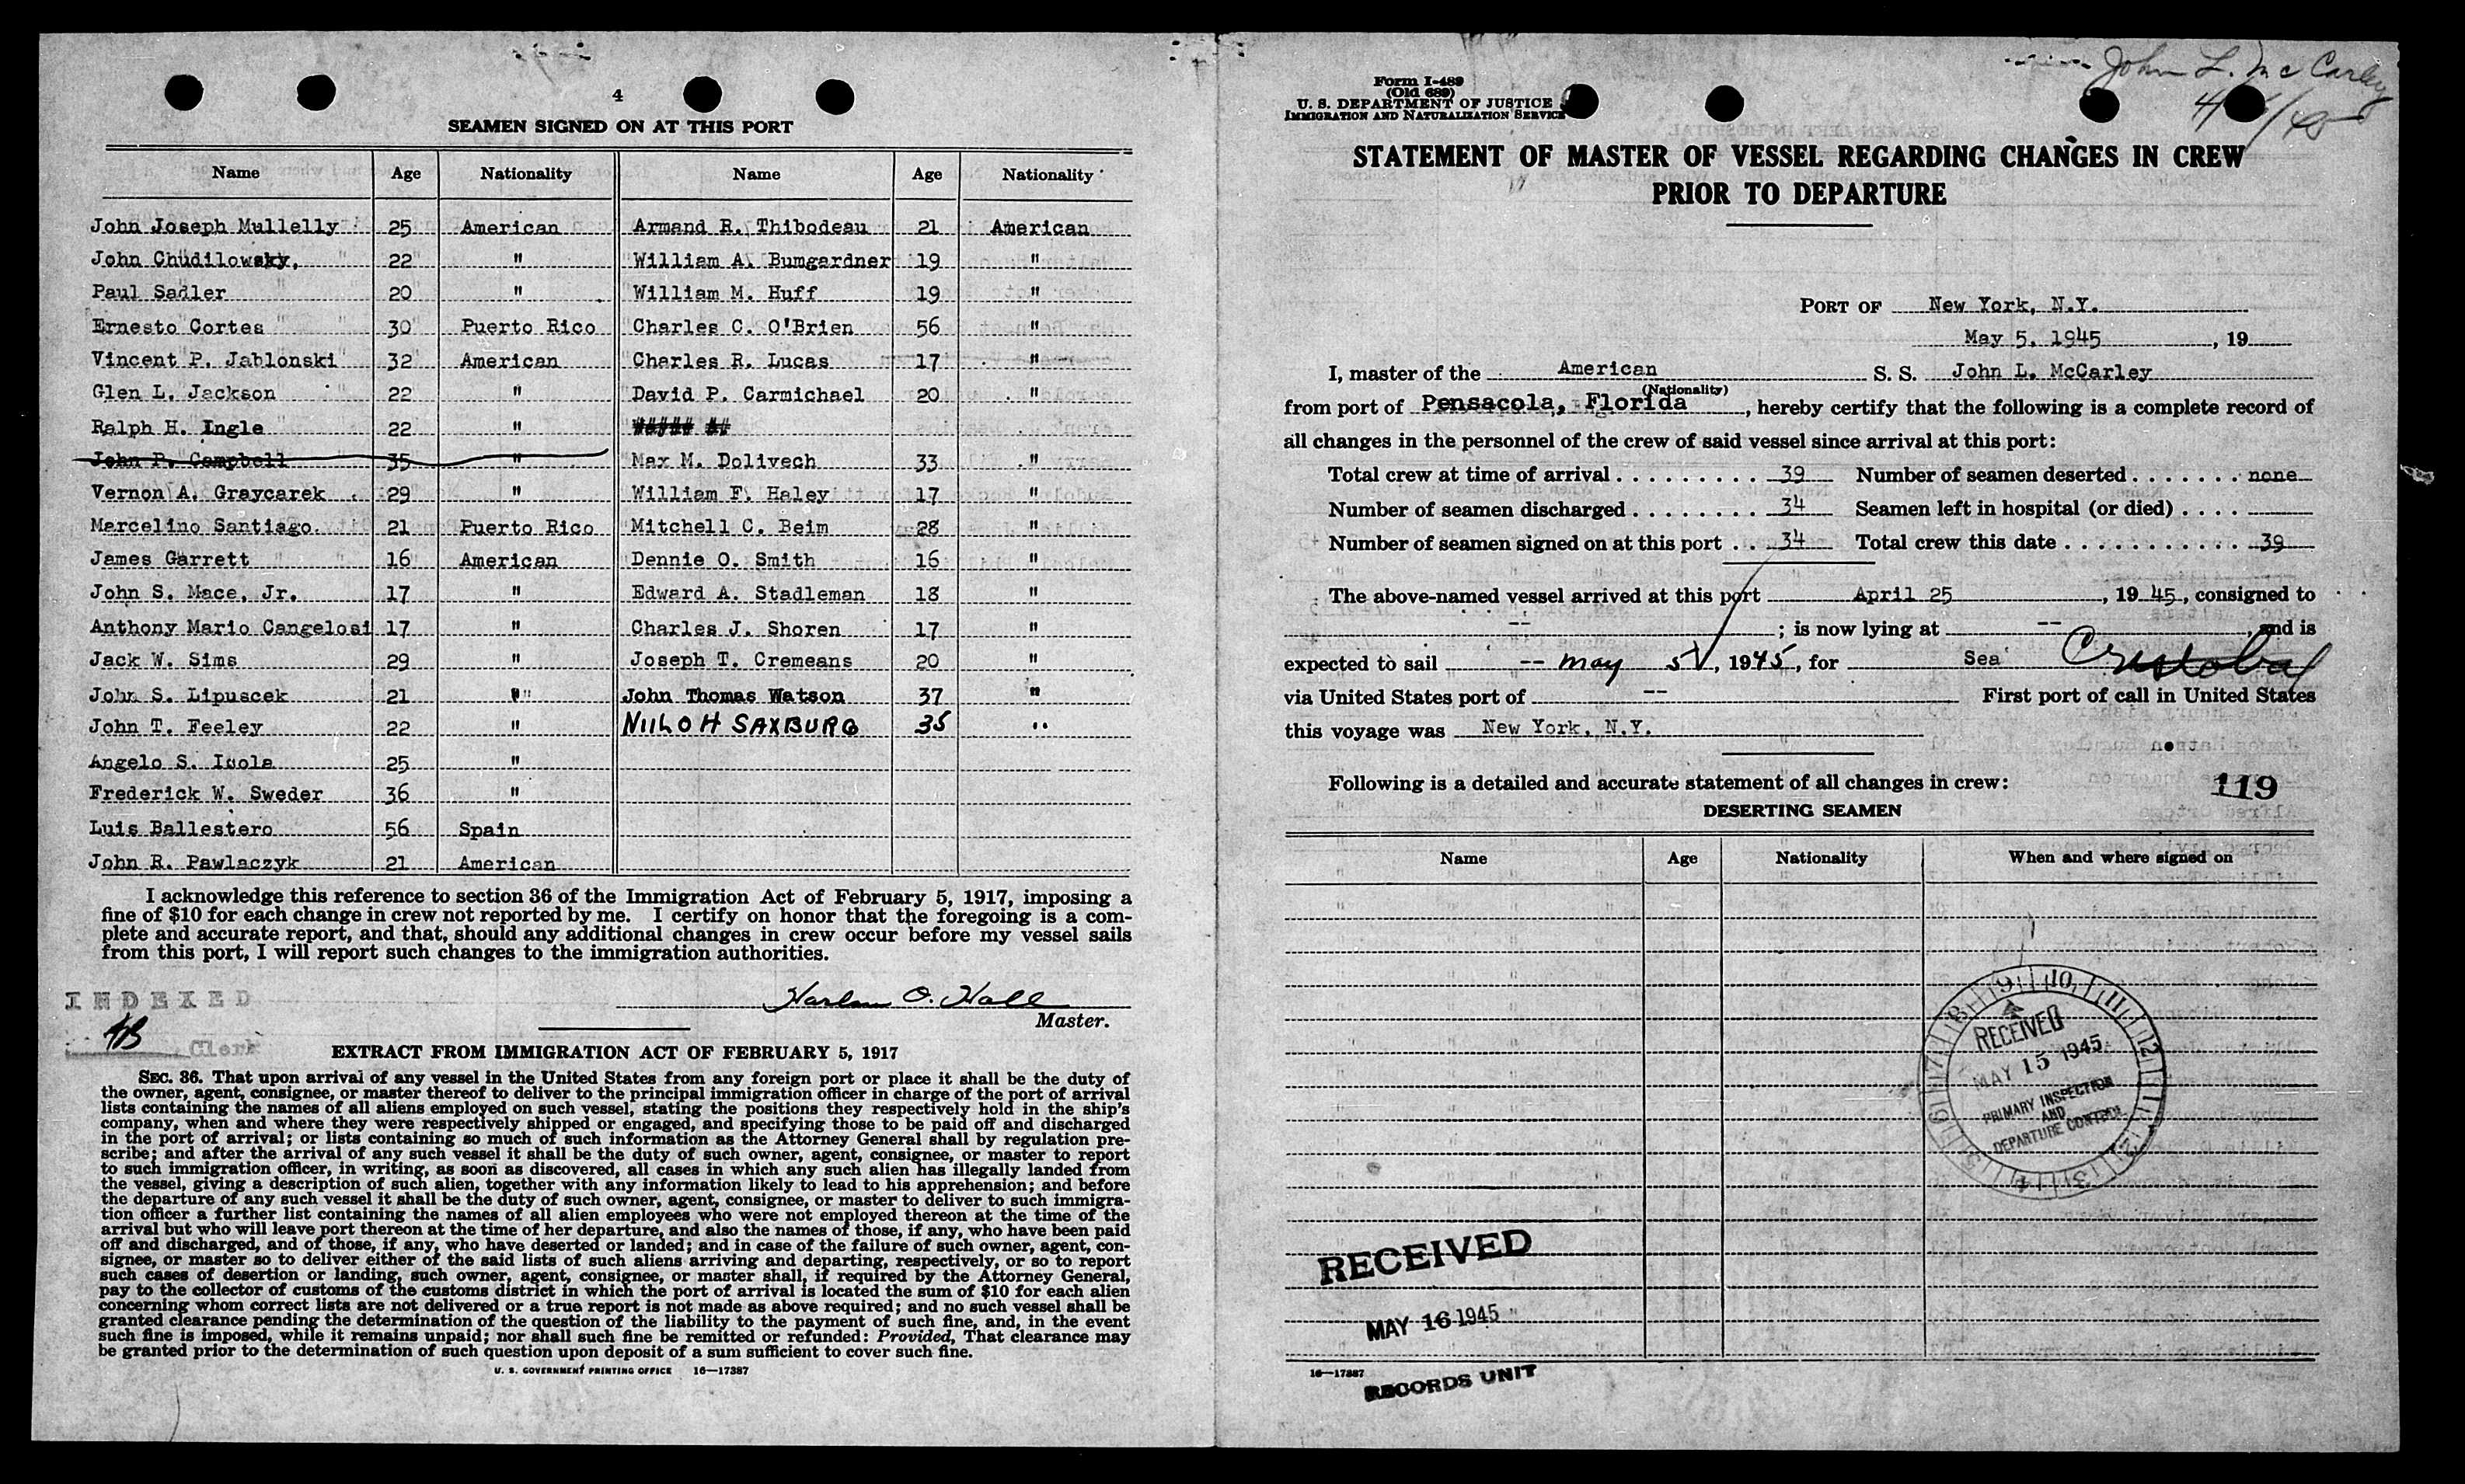 4
SEAMEN SIGNED ON AT THIS PORT
Name Age Nationality Name Age Nationality
John Joseph Mullelly 25 American Armand R. Thibodeau 21 American
John Chudilowsky, 22 " William A. Bumgardner 19 "
Paul Sadler 20 " William M. Huff 19 "
Ernesto Cortes 30 Puerto Rico Charles C. O'Brien 56 "
Vincent P. Jablonski 32 American Charles R. Lucas 17 "
Glen L. Jackson 22 " David P. Carmichael 20 "
Ralph H. Ingle 22 "
John P. Campbell 35 " Max M. Dolivech 33 "
Vernon A. Graycarek 29 " William F. Haley 17 "
Marcelino Santiago. 21 Puerto Rico Mitchell C. Beim 28 "
James Garrett 16 American Dennie O. Smith 16 "
John S. Mace, Jr. 17 " Edward A. Stadleman 18 "
Anthony Mario Cangelosi 17 " Charles J. Shoren 17 "
Jack W. Sims 29 " Joseph T. Cremeans 20 "
John S. Lipuscek 21 " John Thomas Watson 37 "
John T. Feeley 22 " NIILO H SAXBURG 35 "
Angelo S. Isola 25 "
Frederick W. Sweder 36 "
Luis Ballestero 56 Spain
John R. Pawlaczyk 21 American
I acknowledge this reference to section 36 of the Immigration Act of February 5, 1917, imposing a
fine of $10 for each change in crew not reported by me. I certify on honor that the foregoing is a com-
plete and accurate report, and that, should any additional changes in crew occur before my vessel sails
from this port, I will report such changes to the immigration authorities.
INDEXED
Harlan O. Hall
Master.
Clerk
EXTRACT FROM IMMIGRATION ACT OF FEBRUARY 5, 1917
SEC. 36. That upon arrival of any vessel in the United States from any foreign port or place it shall be the duty of
the owner, agent, consignee, or master thereof to deliver to the principal immigration officer in charge of the port of arrival
lists containing the names of all aliens employed on such vessel, stating the positions they respectively hold in the ship's
company, when and where they were respectively shipped or engaged, and specifying those to be paid off and discharged
in the port of arrival; or lists containing so much of such information as the Attorney General shall by regulation pre-
scribe; and after the arrival of any such vessel it shall be the duty of such owner, agent, consignee, or master to report
to such immigration officer, in writing, as soon as discovered, all cases in which any such alien has illegally landed from
the vessel, giving a description of such alien, together with any information likely to lead to his apprehension; and before
the departure of any such vessel it shall be the duty of such owner, agent, consignee, or master to deliver to such immigra-
tion officer a further list containing the names of all alien employees who were not employed thereon at the time of the
arrival but who will leave port thereon at the time of her departure, and also the names of those, if any, who have been paid
off and discharged, and of those, if any, who have deserted or landed; and in case of the failure of such owner, agent, con-
signee, or master so to deliver either of the said lists of such aliens arriving and departing, respectively, or so to report
such cases of desertion or landing, such owner, agent, consignee, or master shall, if required by the Attorney General,
pay to the collector of customs of the customs district in which the port of arrival is located the sum of $10 for each alien
concerning whom correct lists are not delivered or a true report is not made as above required; and no such vessel shall be
granted clearance pending the determination of the question of the liability to the payment of such fine, and, in the event
such fine is imposed, while it remains unpaid; nor shall such fine be remitted or refunded: Provided, That clearance may
be granted prior to the determination of such question upon deposit of a sum sufficient to cover such fine.
U. S. GOVERNMENT PRINTING OFFICE 16—17387
John L. McCarley
Form I-489
(Old 689)
U. S. DEPARTMENT OF JUSTICE
IMMIGRATION AND NATURALIZATION SERVICE
STATEMENT OF MASTER OF VESSEL REGARDING CHANGES IN CREW
PRIOR TO DEPARTURE
PORT OF New York, N.Y.
May 5, 1945, 19
I, master of the American S. S. John L. McCarley
(Nationality)
from port of Pensacola, Florida, hereby certify that the following is a complete record of
all changes in the personnel of the crew of said vessel since arrival at this port:
Total crew at time of arrival . . . . . . . . . 39 Number of seamen deserted . . . . . . . none
Number of seamen discharged . . . . . . . . 34 Seamen left in hospital (or died) . . . .
Number of seamen signed on at this port . . 34 Total crew this date . . . . . . . . . . . 39
The above-named vessel arrived at this port April 25, 19 45, consigned to
-- ; is now lying at --, and is
expected to sail -- May 5, 1945, for Sea Cristobal
via United States port of -- First port of call in United States
this voyage was New York, N.Y.
Following is a detailed and accurate statement of all changes in crew:
119
DESERTING SEAMEN
Name Age Nationality When and where signed on
9 10 11 12 1 2 3 4 5 6 7 8
RECEIVED
MAY 15 1945
PRIMARY INSPECTION
AND
DEPARTURE CONTROL
RECEIVED
MAY 16 1945
RECORDS UNIT
16—17387